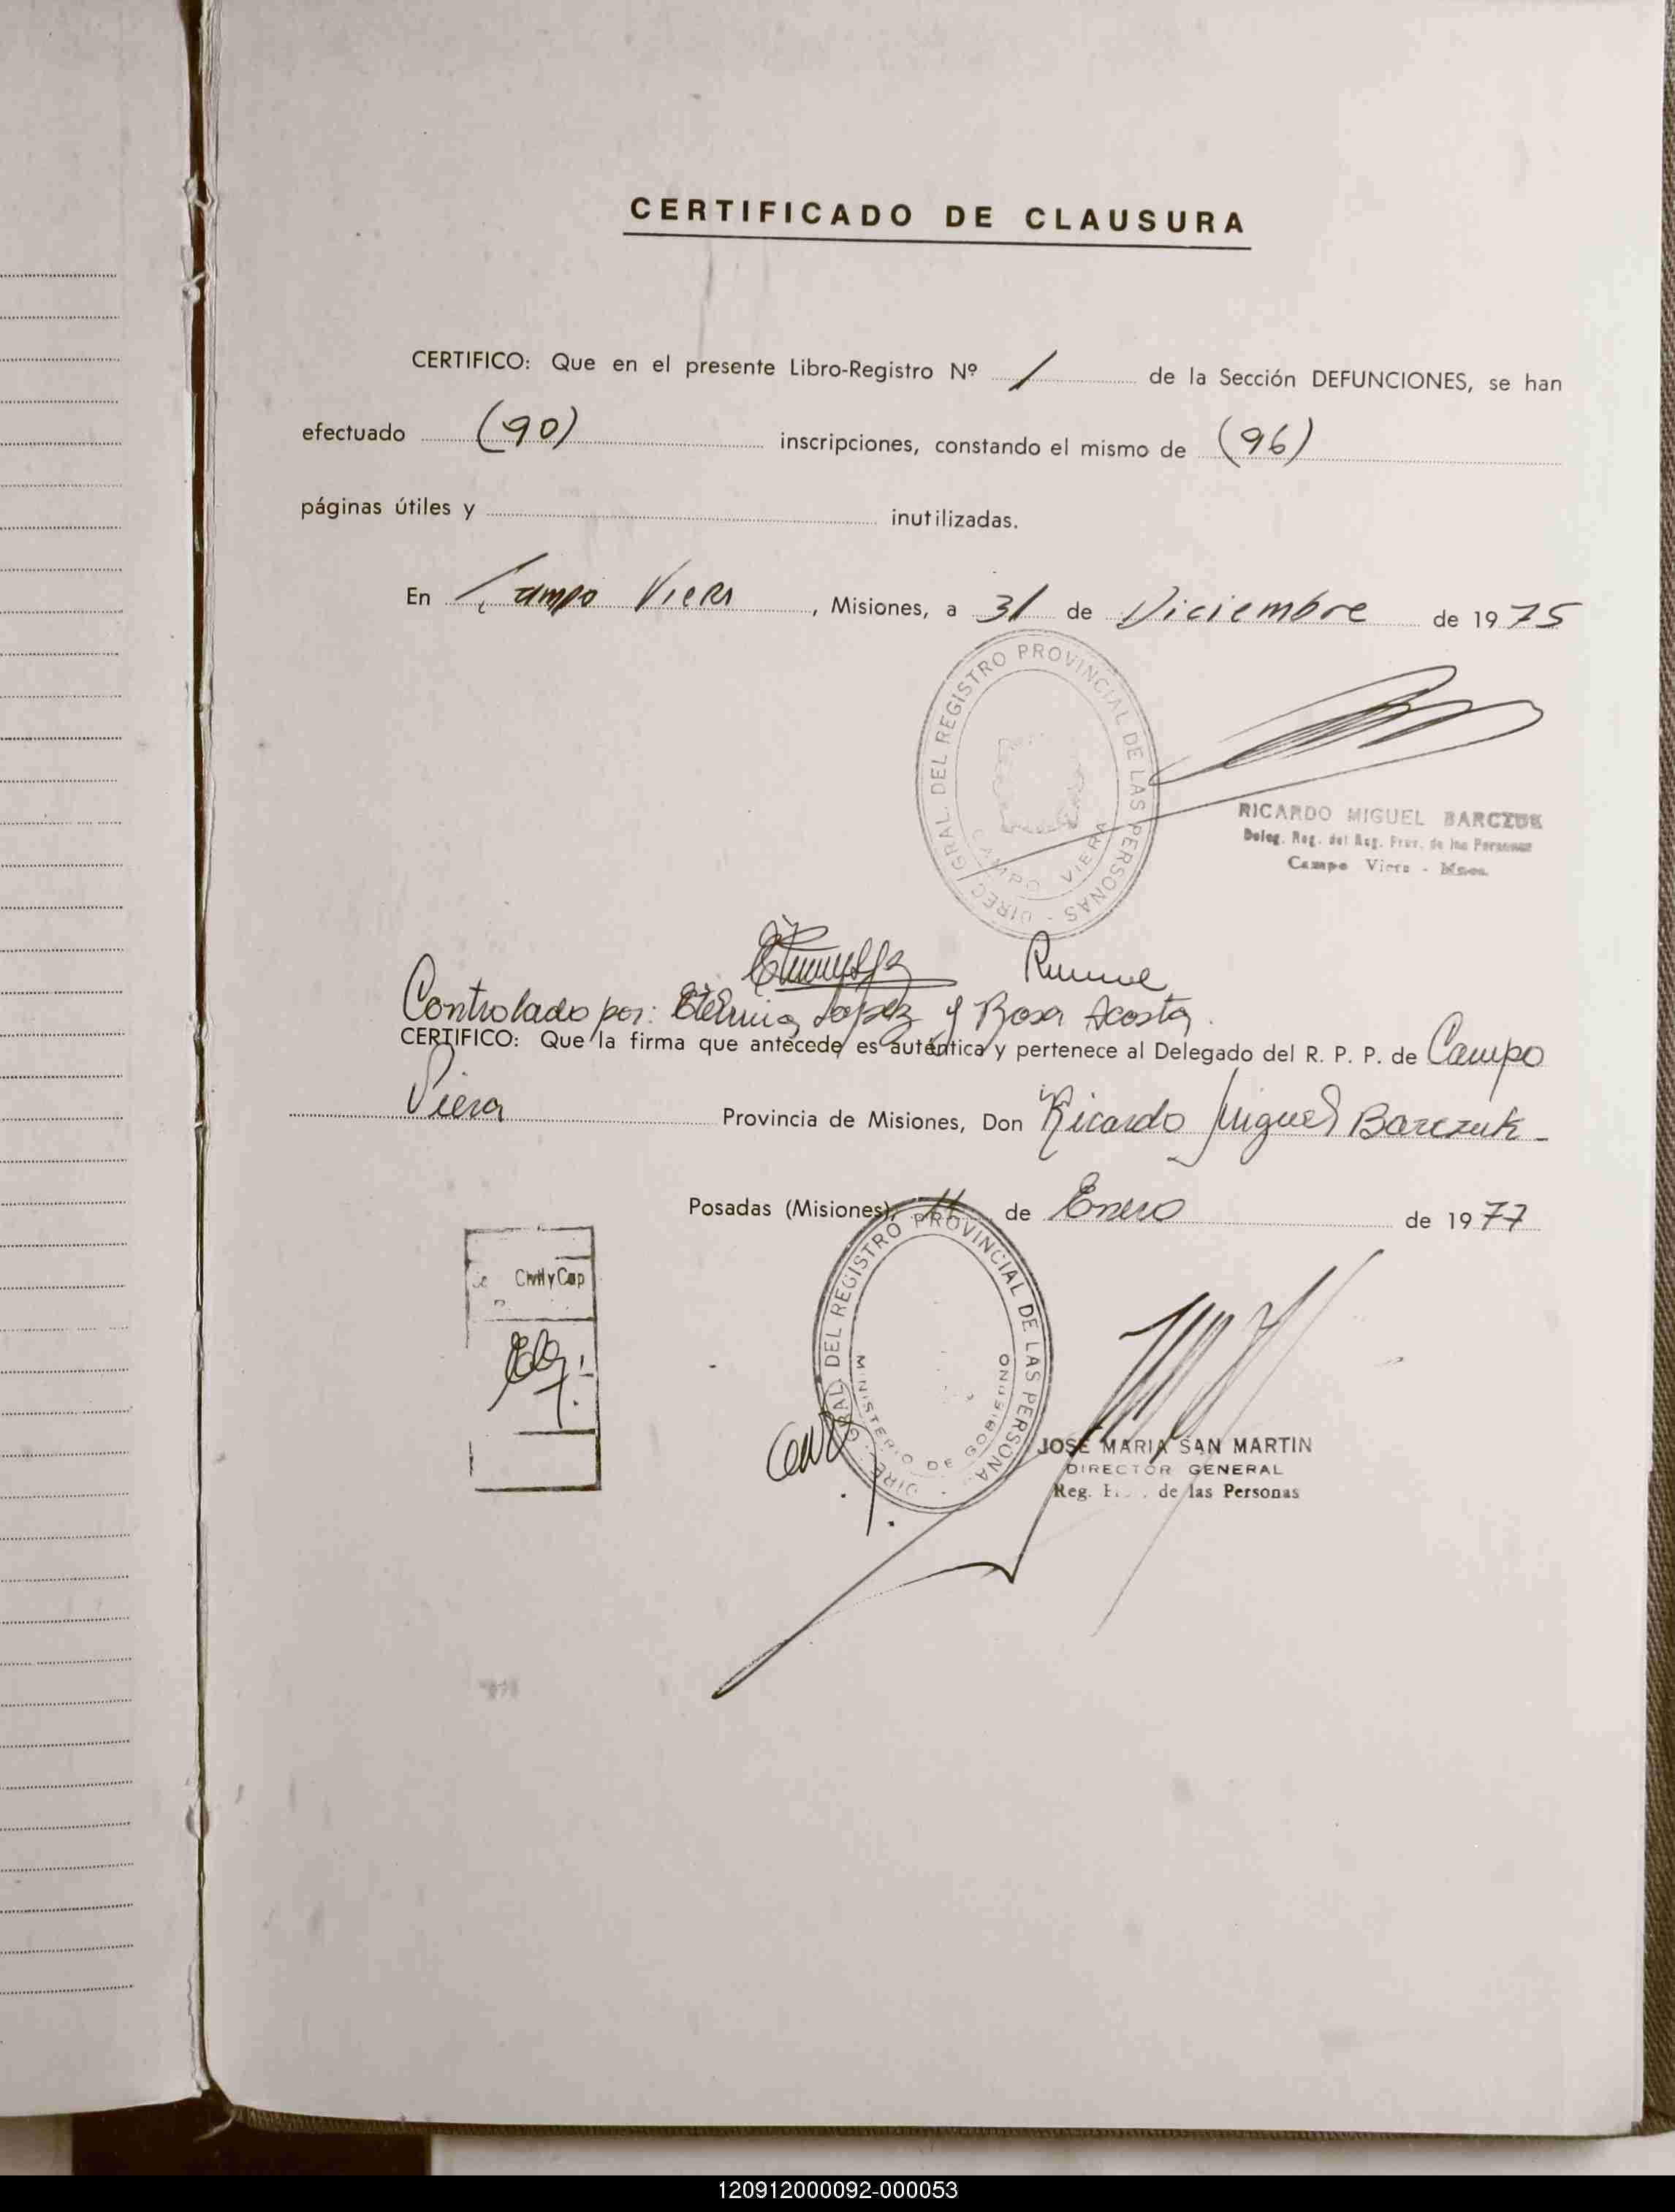 CERTIFICADO DE CLAUSURA
CERTIFICO: Que en el presente Libro-Registro Nº 1 de la Sección DEFUNCIONES, se han
efectuado (90) inscripciones, constando el mismo de (96)
páginas útiles y inutilizadas.
En Campo Viera, Misiones, a 31 de Diciembre de 1975
DIREC. GRAL. DEL REGISTRO PROVINCIAL DE LAS PERSONAS -
CAMPO VIERA
RICARDO MIGUEL BARCZUK
Deleg. Reg. del Reg. Prov. de las Personas
Campo Viera - Mnes.
Controlado por: López y Rosa Acosta.
CERTIFICO: Que la firma que antecede es auténtica y pertenece al Delegado del R. P. P. de Campo
Viera Provincia de Misiones, Don Ricardo Miguel Barczuk -
Posadas (Misiones), 11 de Enero de 1977
DIREC. GRAL. DEL REGISTRO PROVINCIAL DE LAS PERSONAS
MINISTERIO DE GOBIERNO
Civil y Cap
JOSE MARIA SAN MARTIN
DIRECTOR GENERAL
Reg. de las Personas
120912000092-000053